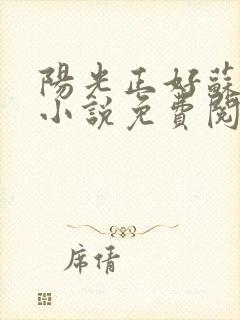 陽光正好蘇
小說免費閱
席情